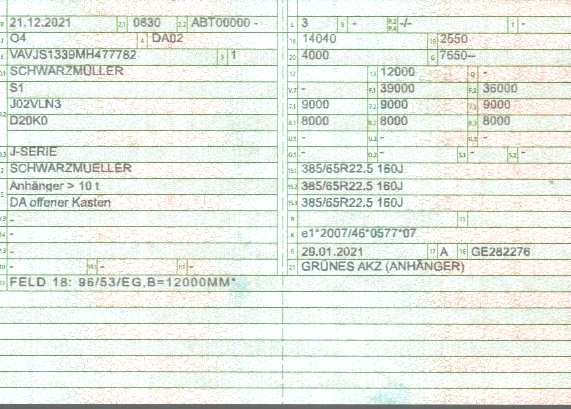 21.12.2021 0830 ABT00000 - 3 - -/- -
O4 DA02 14040 2550
VAVJS1339MH477782 1 4000 7650--
SCHWARZMÜLLER 12000 -
S1 - 39000 36000
J02VLN3 9000 9000 9000
D20K0 8000 8000 8000
- - -
J-SERIE - - - -
SCHWARZMUELLER 385/65R22.5 160J
Anhänger > 10 t 385/65R22.5 160J
DA offener Kasten 385/65R22.5 160J
-
- e1*2007/46*0577*07
- 29.01.2021 A GE282276
- - - GRÜNES AKZ (ANHÄNGER)
FELD 18: 96/53/EG,B=12000MM*